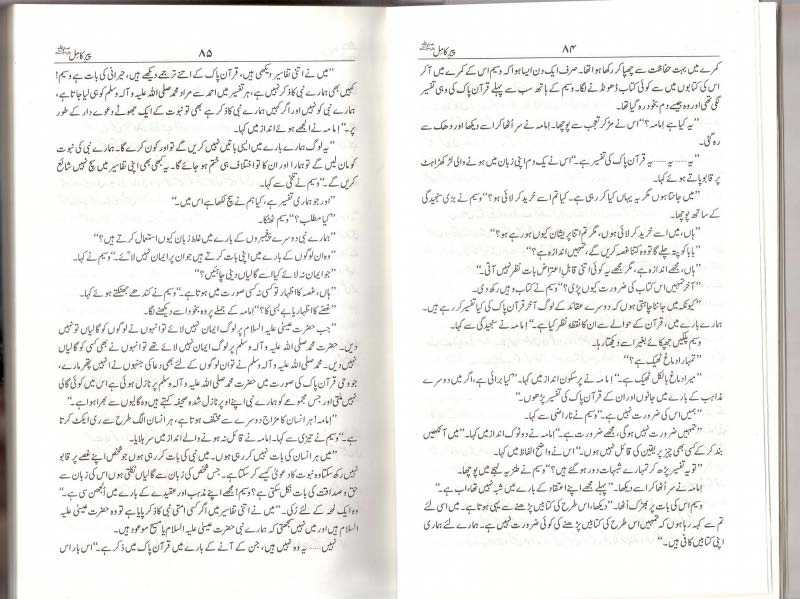 ۸۴ پیر کامل ﷺ
کمرے میں بہت حفاظت سے چھپا کر رکھا ہوا تھا۔ صرف ایک دن ایسا ہوا کہ وسیم اس کے کمرے میں آ کر
اس کی کتابوں میں سے کوئی کتاب ڈھونڈنے لگا۔ وسیم کے ہاتھ سب سے پہلے قرآن پاک کی وہی تفسیر
لگی تھی اور وہ جیسے دم بخود رہ گیا تھا۔
"یہ کیا ہے امامہ؟" اس نے مڑ کر تعجب سے پوچھا۔ امامہ نے سر اٹھا کر اسے دیکھا اور دھک سے
رہ گئی۔
"یہ..... یہ..... یہ قرآن پاک کی تفسیر ہے۔" اس نے یک دم اپنی زبان میں ہونے والی لڑکھڑاہٹ
پر قابو پاتے ہوئے کہا۔
"میں جانتا ہوں مگر یہ یہاں کیا کر رہی ہے۔ کیا تم اسے خرید کر لائی ہو؟" وسیم نے بڑی سنجیدگی
کے ساتھ پوچھا۔
"ہاں، میں اسے خرید کر لائی ہوں، مگر تم اتنا پریشان کیوں ہو رہے ہو؟"
"بابا کو پتہ چلے گا تو وہ کتنا غصہ کریں گے، تمہیں اندازہ ہے؟"
"ہاں، مجھے اندازہ ہے، مگر مجھے یہ کوئی اتنی قابل اعتراض بات نظر نہیں آتی۔"
"آخر تمہیں اس کتاب کی ضرورت کیوں پڑی؟" وسیم نے کتاب وہیں رکھ دی۔
"کیونکہ میں جاننا چاہتی ہوں کہ دوسرے عقائد کے لوگ آخر قرآن پاک کی کیا تفسیر کر رہے ہیں۔
ہمارے بارے میں، قرآن کے حوالے سے ان کا نقطۂ نظر کیا ہے۔" امامہ نے سنجیدگی سے کہا۔
وسیم پلکیں جھپکائے بغیر اسے دیکھتا رہا۔
"تمہارا دماغ ٹھیک ہے؟"
"میرا دماغ بالکل ٹھیک ہے۔" امامہ نے پرسکون انداز میں کہا۔ "کیا برائی ہے، اگر میں دوسرے
مذاہب کے بارے میں جانوں اور ان کے قرآن پاک کی تفسیر پڑھوں۔"
"ہمیں اس کی ضرورت نہیں ہے۔" وسیم نے ناراضی سے کہا۔
"تمہیں ضرورت نہیں ہو گی، مجھے ضرورت ہے۔" امامہ نے دو ٹوک انداز میں کہا۔ "میں آنکھیں
بند کر کے کسی بھی چیز پر یقین کی قائل نہیں ہوں۔" اس نے واضح الفاظ میں کہا۔
"تو یہ تفسیر پڑھ کر تمہارے شبہات دور ہو گئے ہیں؟" وسیم نے طنزیہ لہجے میں پوچھا۔
امامہ نے سر اٹھا کر اسے دیکھا۔ "پہلے مجھے اپنے اعتقاد کے بارے میں شبہ نہیں تھا، اب ہے۔"
وسیم اس کی بات پر بھڑک اٹھا۔ "دیکھا، اس طرح کی کتابیں پڑھنے سے یہی ہوتا ہے۔ میں اسی لئے
تم سے کہہ رہا ہوں کہ تمہیں اس طرح کی کتابیں پڑھنے کی کوئی ضرورت نہیں ہے۔ ہمارے لئے ہماری
اپنی کتابیں کافی ہیں۔"
۸۵ پیر کامل ﷺ
"میں نے اتنی تفاسیر دیکھی ہیں، قرآن پاک کے اتنے ترجمے دیکھے ہیں، حیرانی کی بات ہے وسیم!
کہیں بھی ہمارے نبی کا ذکر نہیں ہے، ہر تفسیر میں احمد سے مراد محمد صلی اللہ علیہ و آلہ وسلم کو ہی لیا جاتا ہے،
ہمارے نبی کو نہیں اور اگر کہیں ہمارے نبی کا ذکر ہے بھی تو نبوت کے ایک جھوٹے دعوے دار کے طور
پر۔" امامہ نے الجھے ہوئے انداز میں کہا۔
"یہ لوگ ہمارے بارے میں ایسی باتیں نہیں کریں گے تو اور کون کرے گا۔ ہمارے نبی کی نبوت
کو مان لیں گے تو ہمارا اور ان کا تو اختلاف ہی ختم ہو جائے گا۔ یہ کبھی بھی اپنی تفاسیر میں سچ نہیں شائع
کریں گے۔" وسیم نے تلخی سے کہا۔
"اور جو ہماری تفسیر ہے، کیا ہم نے سچ لکھا ہے اس میں۔"
"کیا مطلب؟" وسیم ٹھٹکا۔
"ہمارے نبی دوسرے پیغمبروں کے بارے میں غلط زبان کیوں استعمال کرتے ہیں؟"
"وہ ان لوگوں کے بارے میں اپنی بات کرتے ہیں جو ان پر ایمان نہیں لائے۔" وسیم نے کہا۔
"جو ایمان نہ لائے کیا اسے گالیاں دینی چاہئیں؟"
"ہاں، غصہ کا اظہار تو کسی نہ کسی صورت میں ہوتا ہے۔" وسیم نے کندھے جھٹکتے ہوئے کہا۔
"غصے کا اظہار یا بے بسی کا؟" امامہ کے جملے پر وہ بخود اسے دیکھنے لگا۔
"جب حضرت عیسیٰ علیہ السلام پر لوگ ایمان نہیں لائے تو انہوں نے لوگوں کو گالیاں تو نہیں
دیں۔ حضرت محمد صلی اللہ علیہ و آلہ وسلم پر لوگ ایمان نہیں لائے تھے تو انہوں نے بھی کسی کو گالیاں
نہیں دیں۔ محمد صلی اللہ علیہ و آلہ وسلم نے تو ان لوگوں کے لئے بھی دعا کی جنہوں نے انہیں پتھر مارے،
جو وحی قرآن پاک کی صورت میں حضرت محمد صلی اللہ علیہ و آلہ وسلم پر نازل ہوئی ہے اس میں کوئی گالی
نہیں ملتی اور جس مجموعے کو ہمارے نبی اپنے اوپر نازل شدہ صحیفہ کہتے ہیں وہ گالیوں سے بھرا ہوا ہے۔"
"امامہ! ہر انسان کا مزاج دوسرے سے مختلف ہوتا ہے، ہر انسان الگ طرح سے ری ایکٹ کرتا
ہے۔" وسیم نے تیزی سے کہا۔ امامہ نے قائل نہ ہونے والے انداز میں سر ہلایا۔
"میں ہر انسان کی بات نہیں کر رہی ہوں۔ میں نبی کی بات کر رہی ہوں جو شخص اپنے غصے پر قابو
نہیں رکھ سکتا وہ نبوت کا دعویٰ کیسے کر سکتا ہے۔ جس شخص کی زبان سے گالیاں نکلتی ہوں اس کی زبان سے
حق و صداقت کی بات نکل سکتی ہے؟ وسیم! مجھے اپنے مذہب اور عقیدے کے بارے میں الجھن سی ہے۔"
وہ ایک لمحہ کے لئے رکی۔ "میں نے اتنی تفاسیر میں اگر کسی امتی نبی کا ذکر پایا ہے تو وہ حضرت عیسیٰ علیہ
السلام ہیں اور میں نہیں سمجھتی کہ ہمارے نبی حضرت عیسیٰ علیہ السلام یا مسیح موعود ہیں۔
نہیں..... یہ وہ نہیں ہیں، جن کے آنے کے بارے میں قرآن پاک میں ذکر ہے۔" اس بار اس